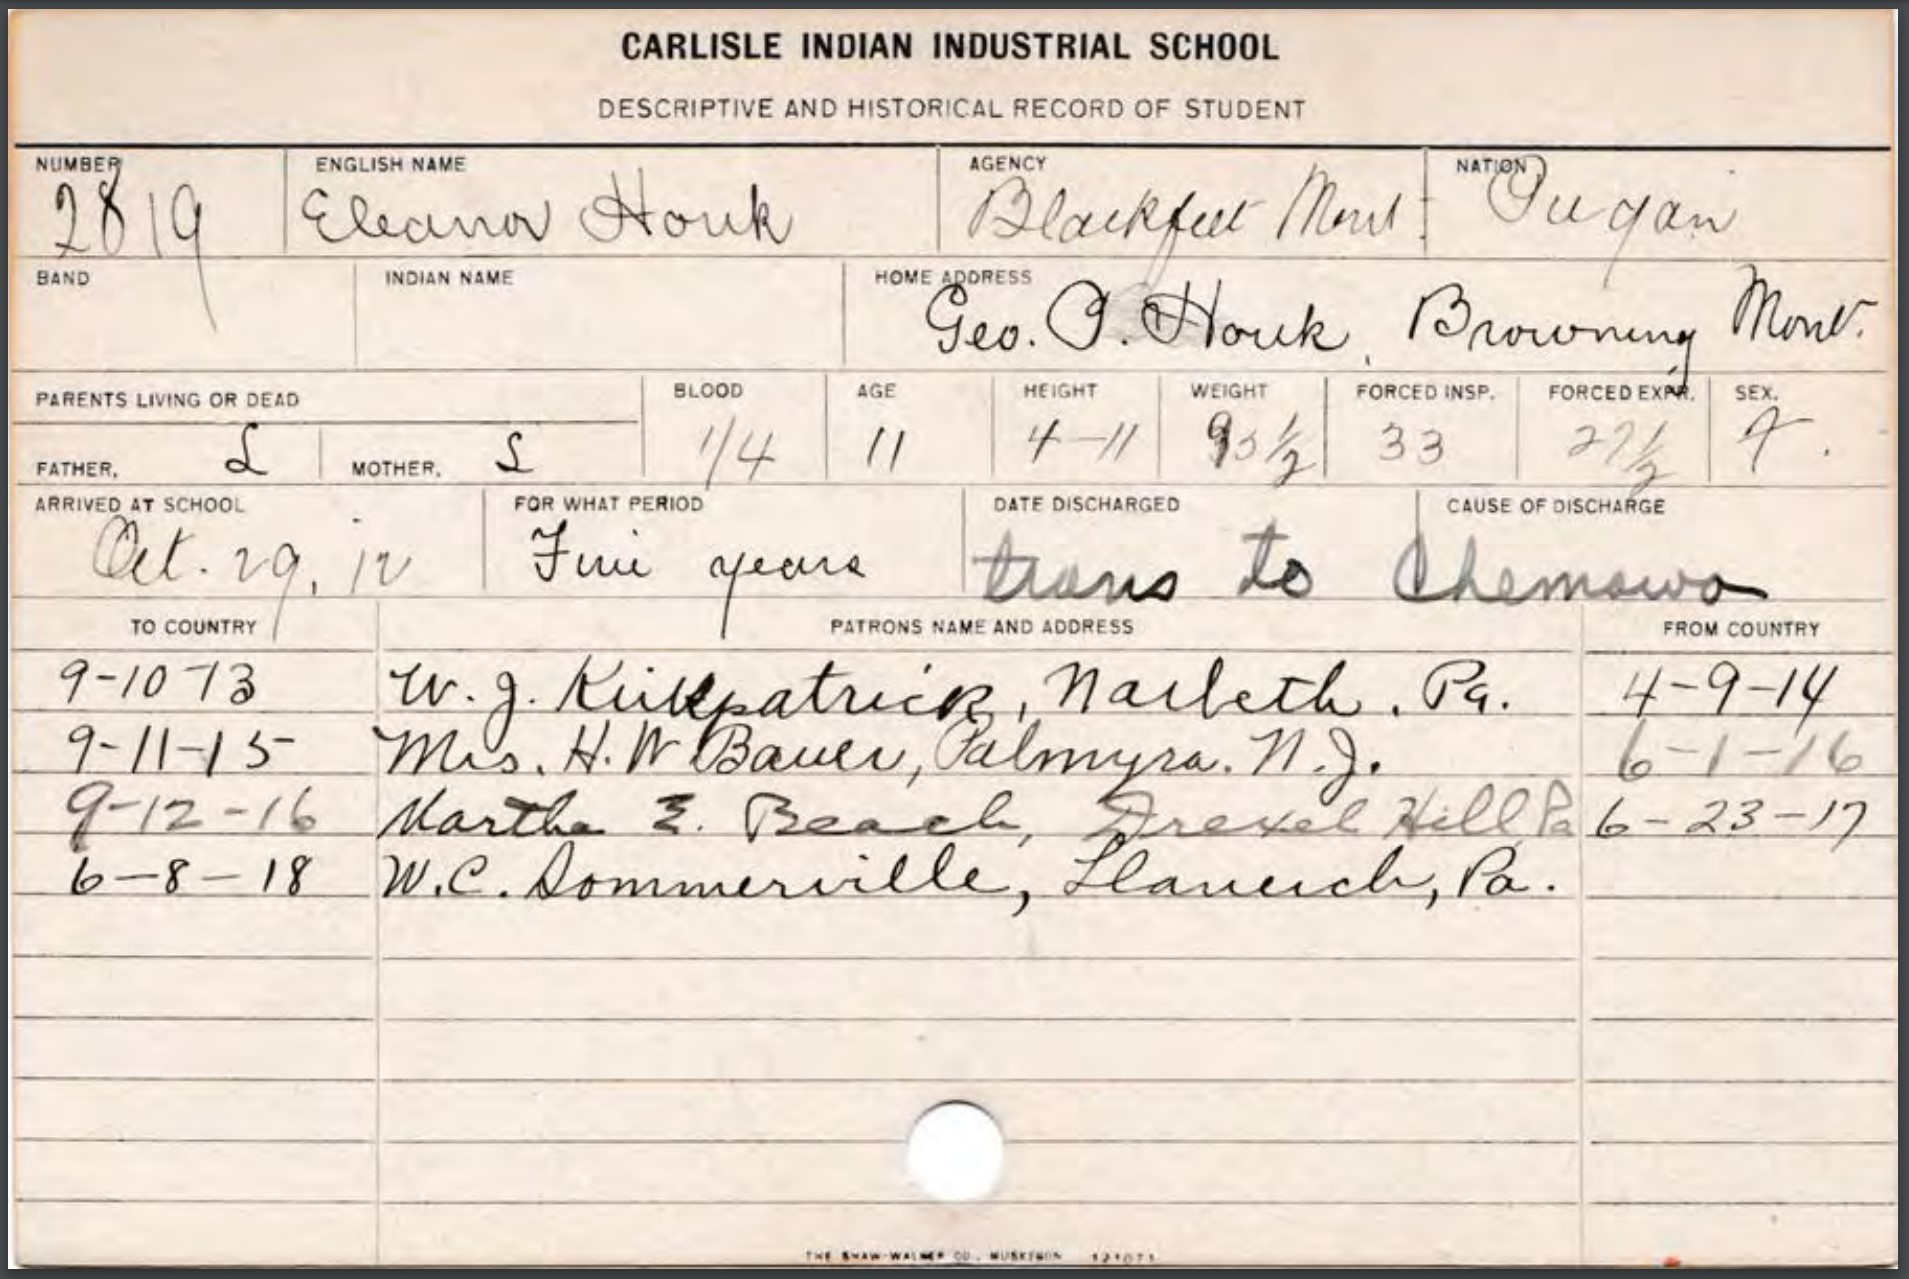 CARLISLE INDIAN INDUSTRIAL SCHOOL
DESCRIPTIVE AND HISTORICAL RECORD OF STUDENT
NUMBER ENGLISH NAME AGENCY NATION
2819 Eleanor Houk Blackfeet Mont. Piegan
BAND INDIAN NAME HOME ADDRESS
Geo. P. Houk, Browning Mont.
PARENTS LIVING OR DEAD BLOOD AGE HEIGHT WEIGHT FORCED INSP. FORCED EXPR. SEX.
FATHER, L MOTHER, L 1/4 11 4-11 95 1/2 33 27 1/2 F.
ARRIVED AT SCHOOL FOR WHAT PERIOD DATE DISCHARGED CAUSE OF DISCHARGE
Oct. 29, 12 Five years trans to Chemawa
TO COUNTRY PATRONS NAME AND ADDRESS FROM COUNTRY
9-10-13 W. J. Kirkpatrick, Narbeth. Pa. 4-9-14
9-11-15 Mrs. H. W Bauer, Palmyra. N.J. 6-1-16
9-12-16 Martha E. Beach, Drexel Hill, Pa 6-23-17
6-8-18 W.C. Sommerville, Llanerch, Pa.
THE SHAW-WALKER CO., MUSKEGON 121071